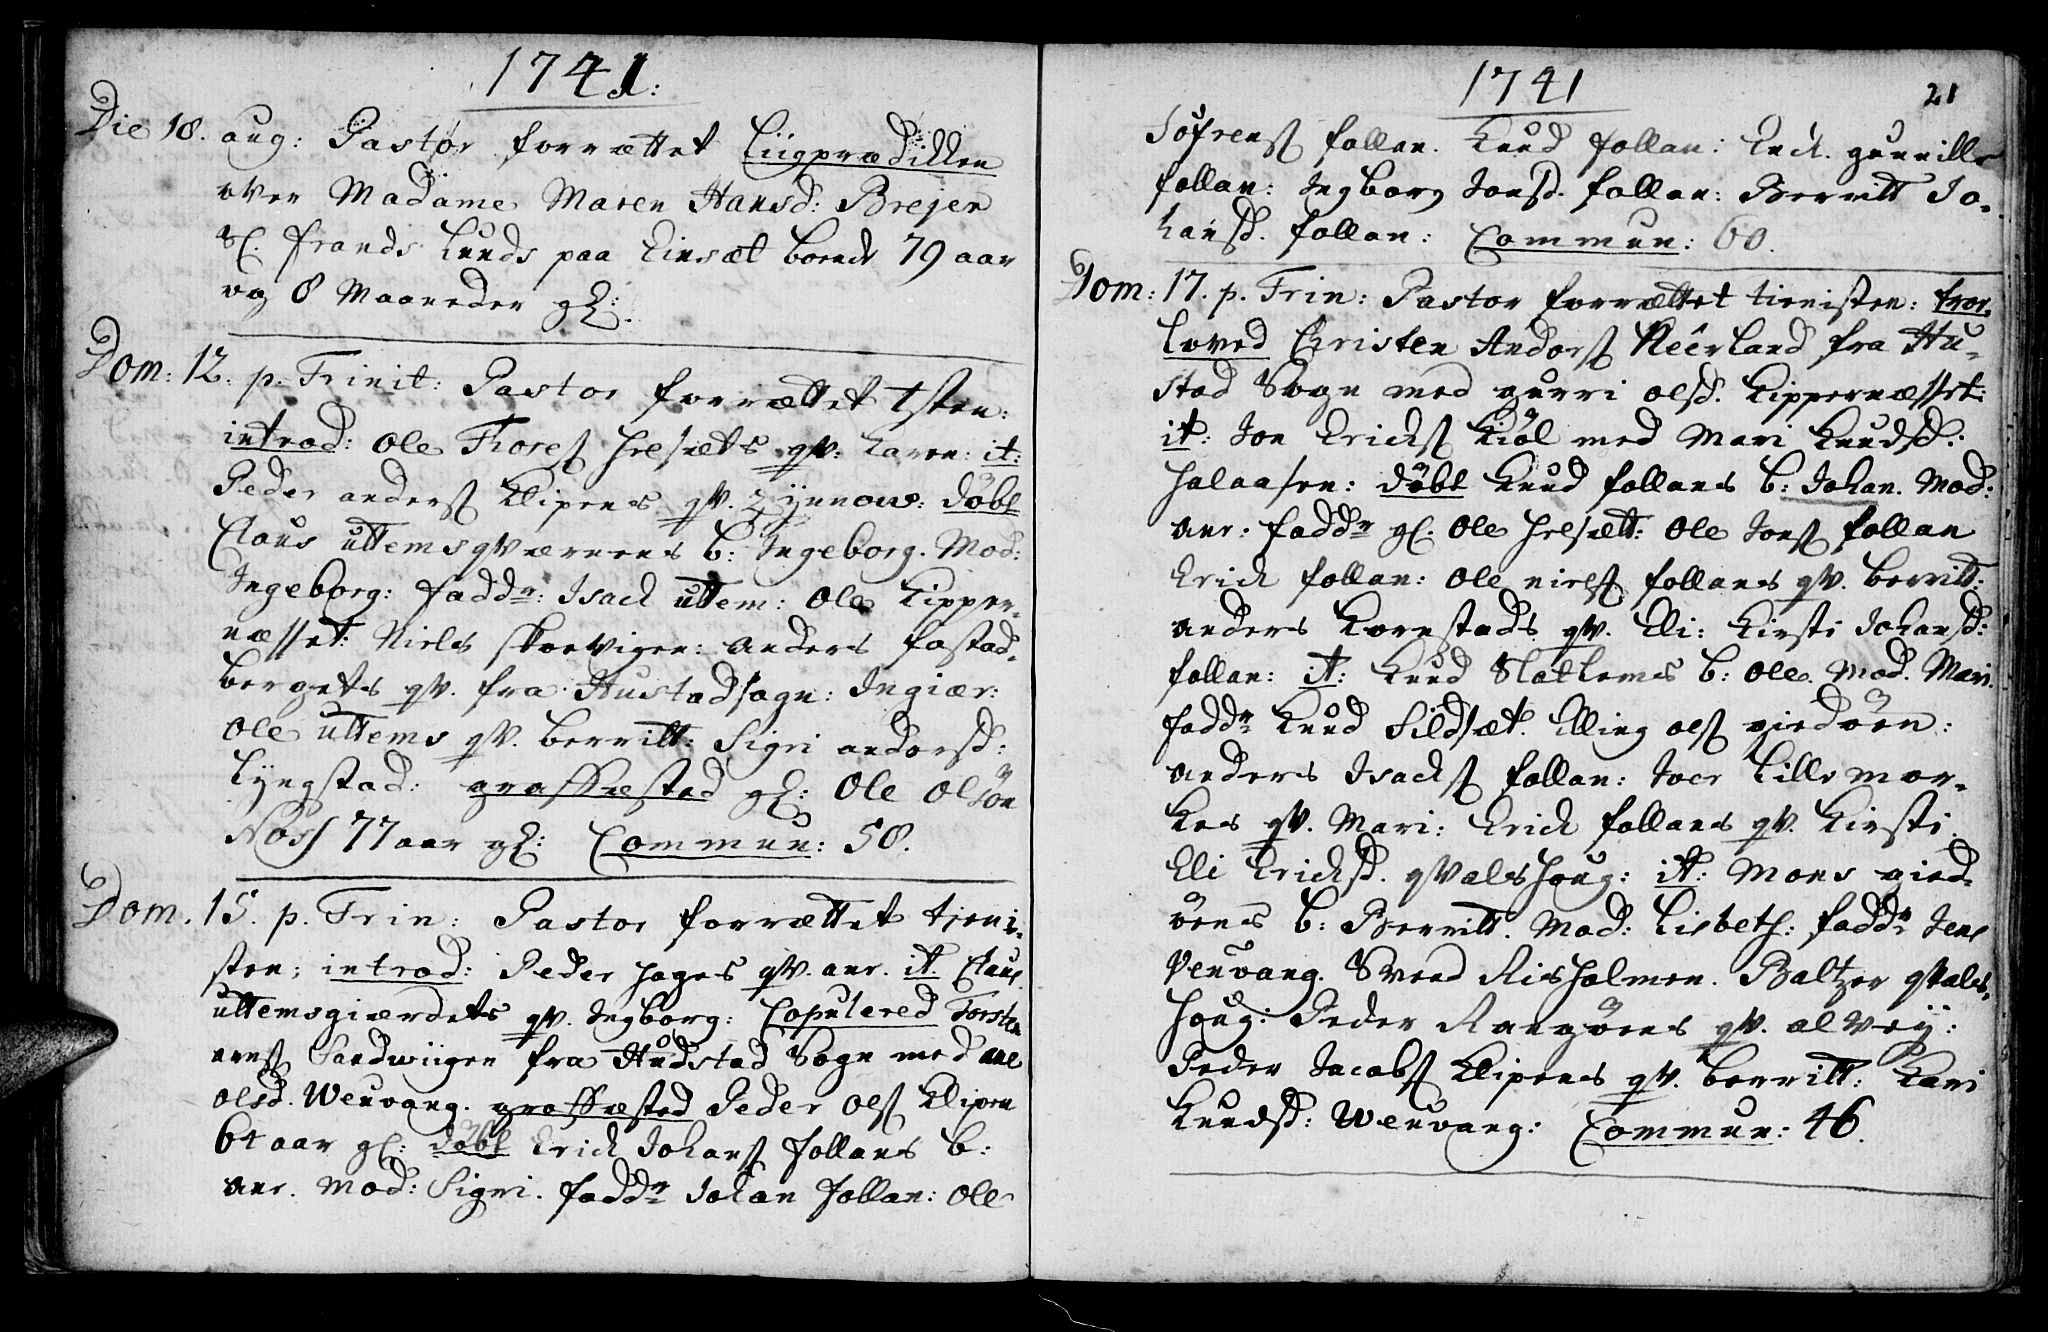 1741.
Die 18. aug: Pastor forrættet Liigprædikken
over Madame Maren Hansd: Brejer
Sl. Frands Lunds paa Einsæt boende 79 aar
og 8 Maaneder gl:
Dom: 12. p. Trinit: Pastor forrættet tjsten:
introd: Ole Thores Helsæts qv: Karen: it:
Peder anders Klipens qv. Zynnow: döbt
Claus uttemsqværnens b: Ingeborg. Mod:
Ingeborg: fadd: Isach uttem: Ole Kipper-
næsset: Niels Skorvigen: anders fostad-
bergets qv. fra Hustadsogn: Ingiær:
Ole uttems qv. Berritt: Sigri andersd:
Lyngstad: graffæsted gl: Ole Olsön
Noss 77 aar gl: Commun: 58.
Dom. 15. p. Trin: Pastor forrættet tjeni-
sten: introd: Peder Hages qv. anr. it. Claus
uttemsgiærdets qv. Ingborg: Copulered Torsten
arns Sandwiigen fra Hudstad Sogn med ane
olsd. Wenvang. graffæsted Peder ols Klipen
61 aar gl: döbt Erich Johans follans b:
anr. Mod: Sigri. fadd Johan follan: Ole
1741
21
Sofrens follan. Knud follan: Enck. gunnille
follan: Ingborg Jonsd. follan: Berritt Jo-
hansd. follan: Commun: 60.
Dom: 17. p. Trin: Pastor forrættet tienisten: tror-
loved Christen Anders Neerland fra Hu-
stad Sogn med gurri olsd. Kippernæsset:
it: Jon Erichs Kiöl med Mari Knudsd.
Halaasen: döbt Knud follans b: Johan. Mod:
anr: fadd gl. Ole Helsætt: Ole Jons follan
Erich follan: Ole niels follans qv. berritt:
anders Kornstads qv. Eli: Kirsti Johansd:
follan: it: Knud Slathems b: Ole. Mod. Mari.
fadd Knud Sildsæt. Elling ols giedöen:
anders Isachs follan: Joer Lille mor-
kes qv. Mari: Erich follans qv. Kirsti
Eli Erichsd. qvalshoug: it: Mons gied-
öens b: Berritt. Mod: Lisbeth: fadd Jens
Venvang. Svend Risholmen. Baltzer qvals-
houg: Peder Rangöens qv. alvey:
Peder Jacobs Klipens qv. berritt: Kari
Knudsd: Wenvang: Commun: 46.